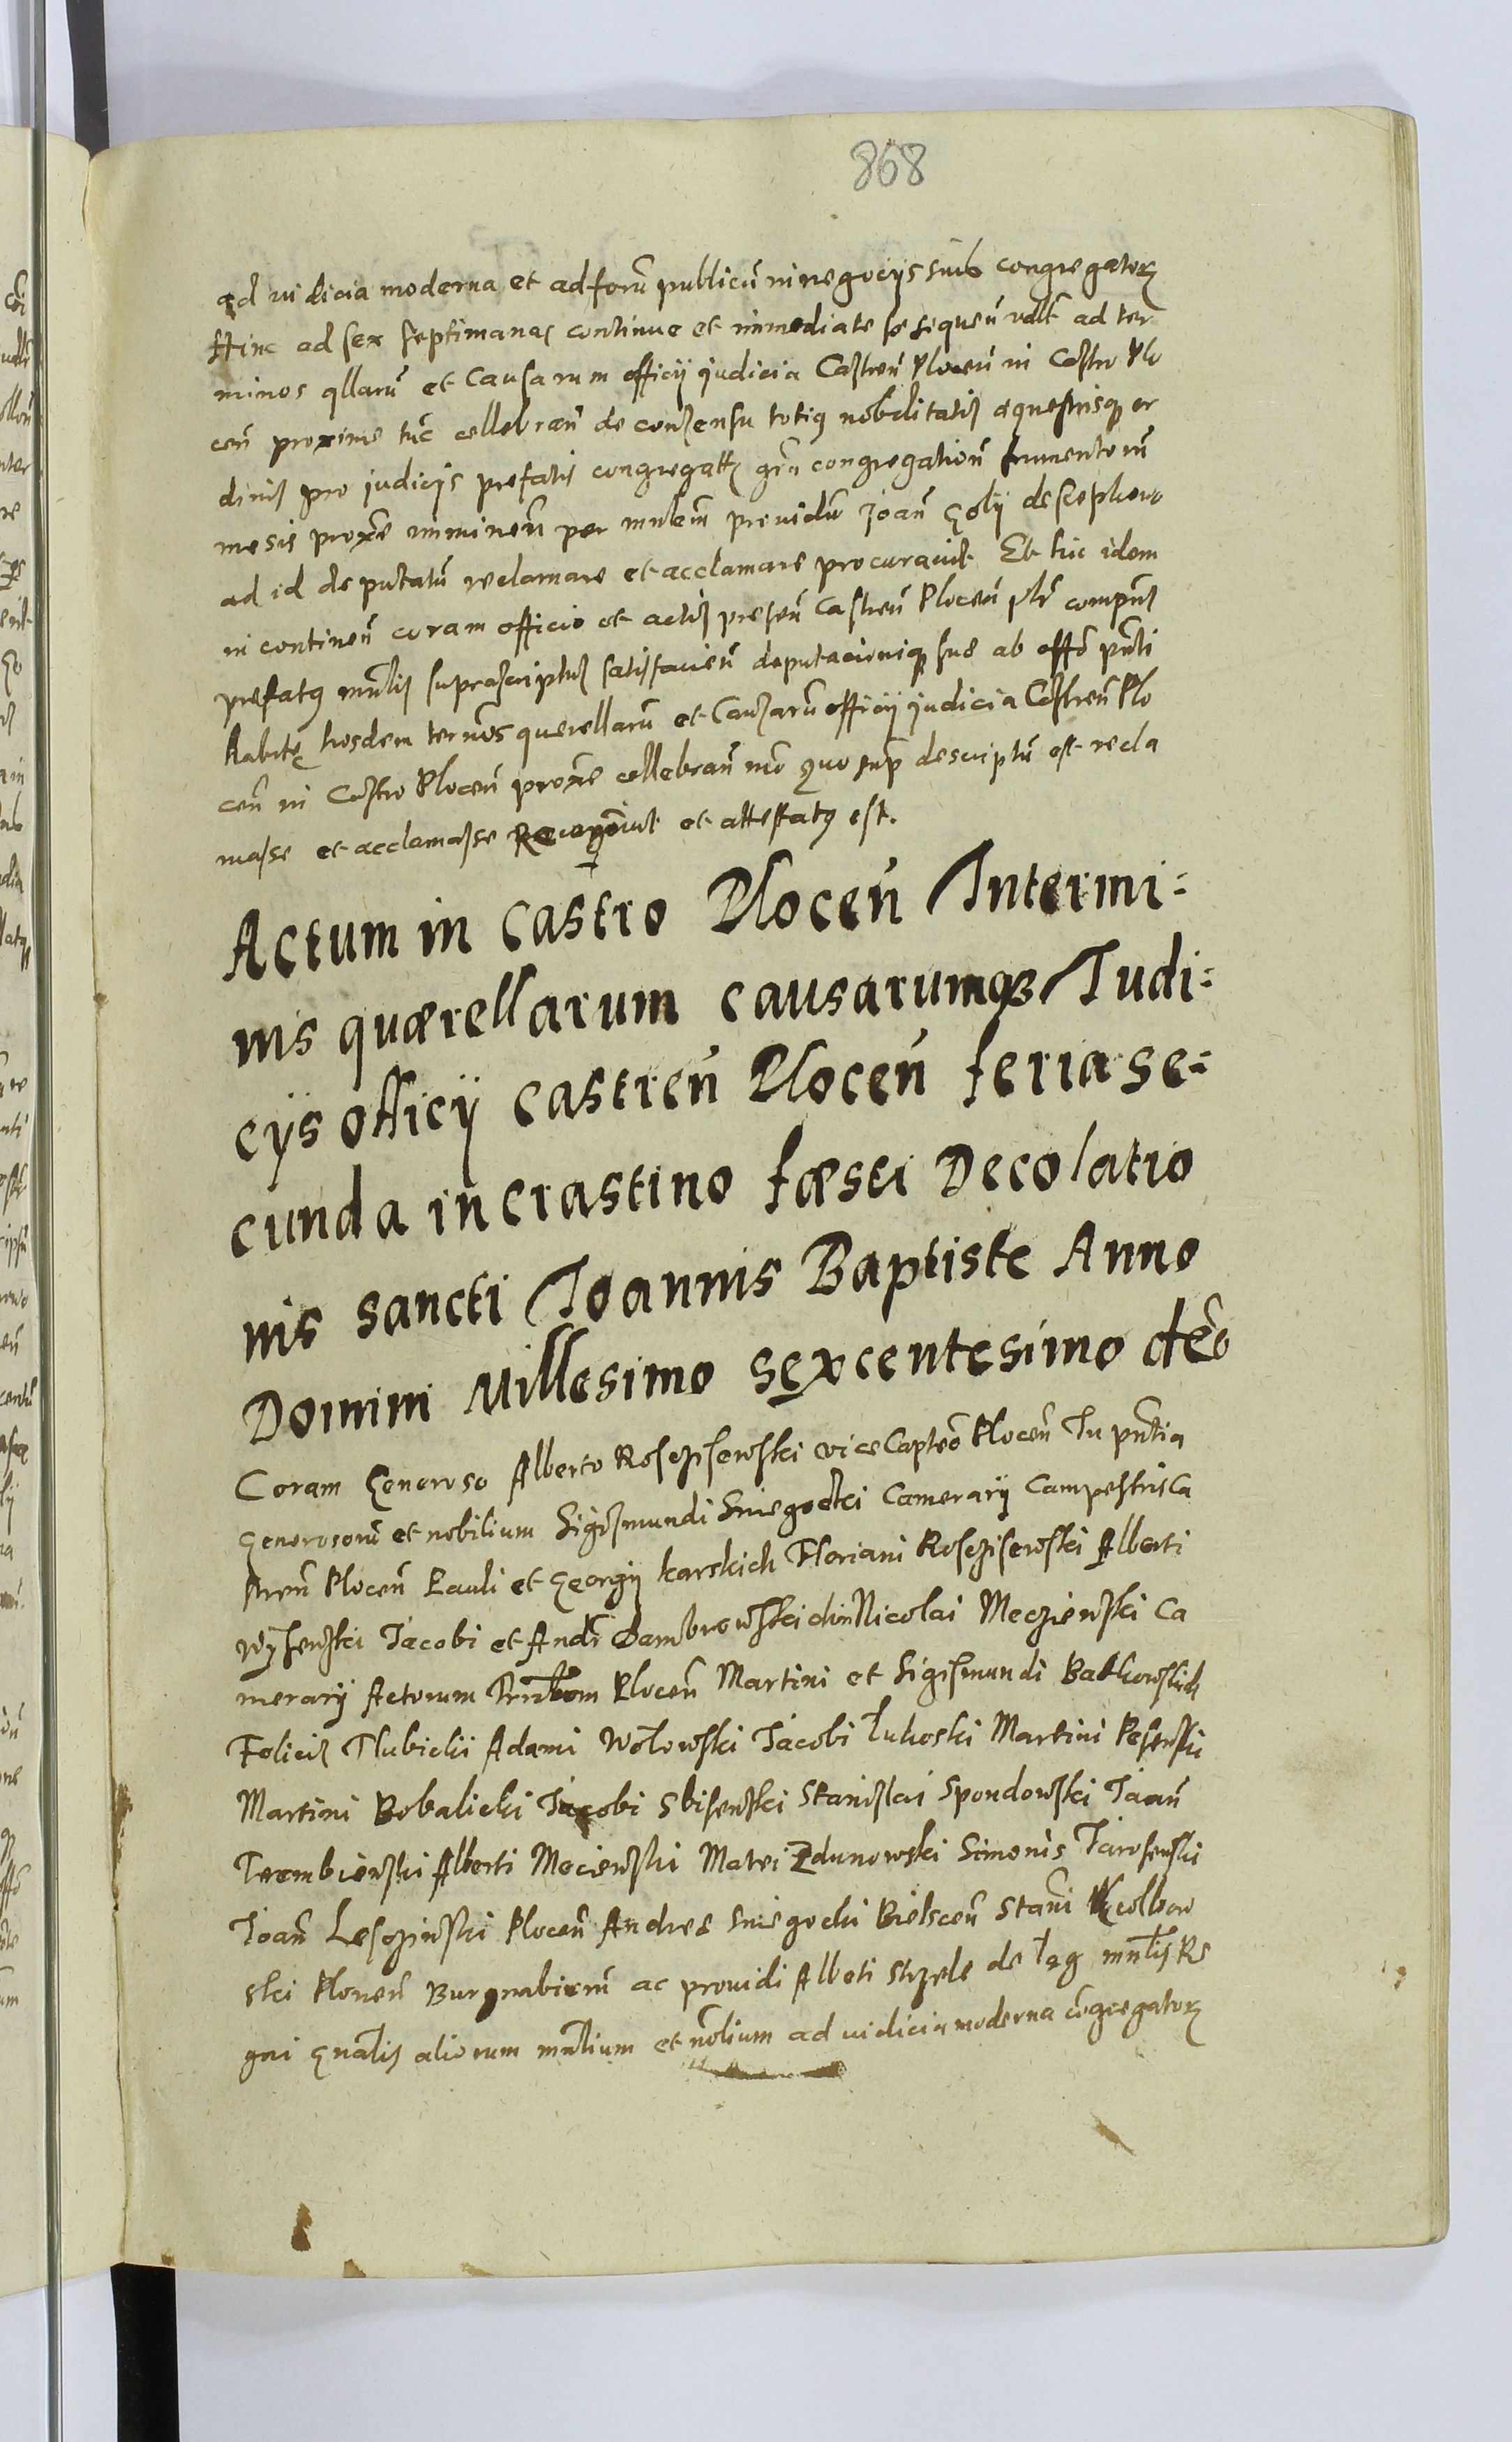 868
ad iudicia moderna et ad forū publicū in negocijs suis congregatorꝫ
Hinc ad sex septimanas continue et immediate se sequen̄ vdlt ad ter
minos qllarū et Causarum officij judicia Castren̄ Plocen̄ in Castro Plo
cen̄ proxime tūc cellebran̄ de consensu totiꝯ nobilitatis equestrisqꝫ or
dinis pro judicijs prefatis congregatꝫ grā congregation̄ frumentorū
mesis proxē imminen̄ per mnlem̄ prouidū Joan̄ Goly de
ad id deputatū reclamare et acclamare procurauit Et hic idem
in continen̄ coram officio et actis presen̄ Castren̄ Plocen̄ plr̄ compn̄s
prefatꝯ mn̄lis suprascriptus satisfacien̄ deputacioniqꝫ sue ab offō pn̄ti
habite hosdem termōs querellarū et Causarū officij judicia Castren̄ Plo
cen̄ in Castro Plocen̄ proxē cellebran̄ mō quo sup̄ descriptū est recla
masse et acclamasse Recognouit et attestatꝯ est.
Actum in castro Plocen̄ Intermi-
nis quærellarum causarumqꝫ Judi-
cijs officij castren̄ Plocen̄ feria se-
cunda in crastino fæsti Decolatio
nis sancti Joannis Baptiste Anno
Domini Millesimo sexcentesimo deō
Coram Generoso Alberto Rosczisewski vice Capteō Plocen̄ In pn̄tia
Generosorū et nobilium Sigismundi Sniegoczki Camerarij Campestris Ca
stren̄ Plocen̄ Pauli et Georgij karskich Floriani Rosczisewski Alberti
Jacobi et Andr̄ Dambrowski Nicolai Meczienski Ca
merarij Actorum Plocen̄ Martini et Sigismundi Bathowskich
Felicis Tlubicki Adami Wołowski Jacobi Łukoski Martini
Martini Bobalicki Jacobi Sbisewski Stanislai Spondowski Joan̄
Trembiewski Alberti Meciewski Matei Zdunowski Simonis Jarosewski
Joan̄ Lesczinski Plocen̄ Andree Sniegocki Bielscen̄ Stan̄i
ski Plonen̄ Burgrabiorū ac prouidi Alberti Strzela de Łęg mn̄lis Re
gni gn̄alis aliorum mn̄lium et nōlium ad iudicia moderna cōgregatorꝫ